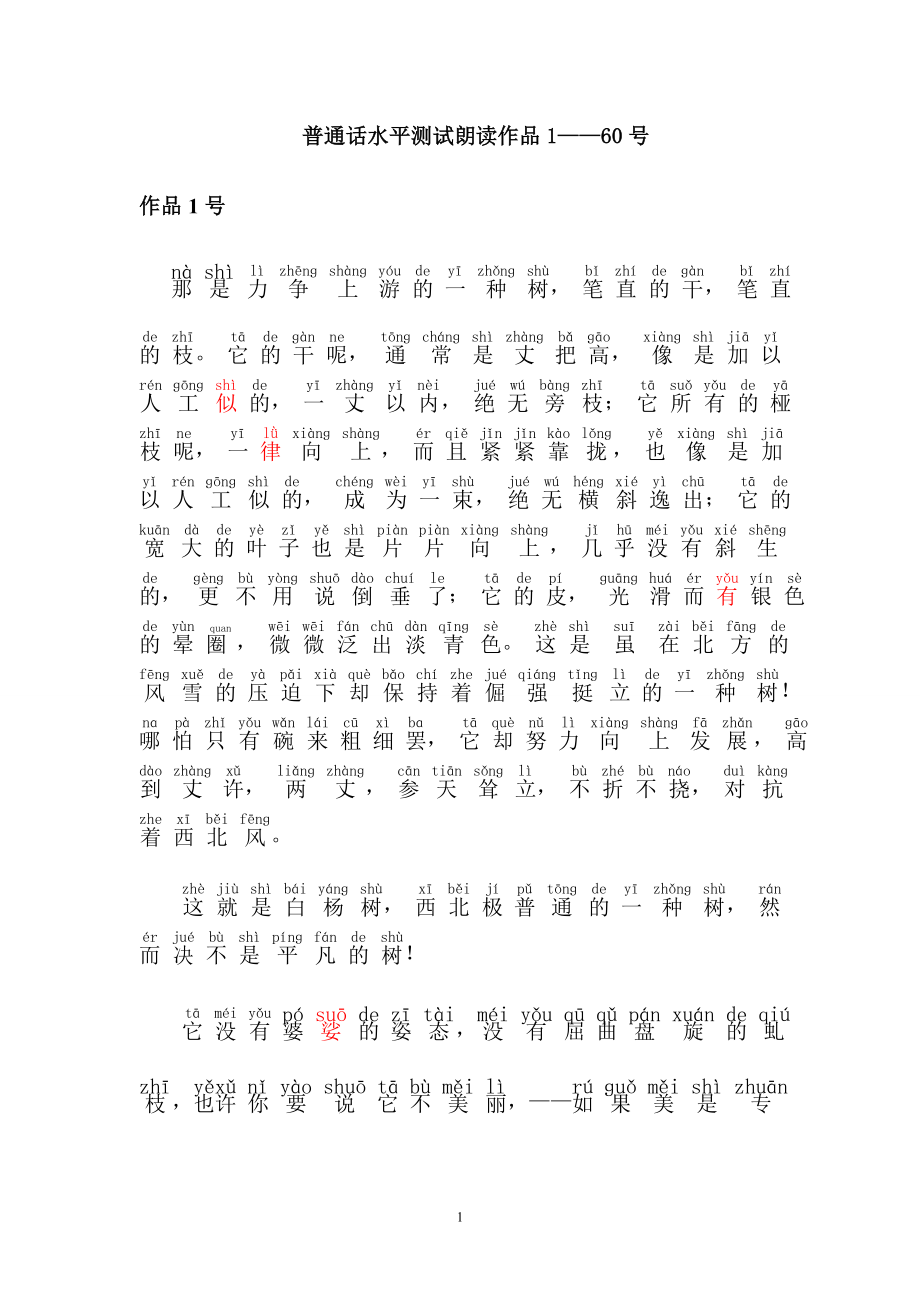 普通话水平测试朗读作品1——60号
作品1号
nà shì lì zhēng shàng yóu de yī zhǒng shù bǐ zhí de gàn bǐ zhí
那是力争上游的一种树，笔直的干，笔直
de zhī tā de gàn ne tōng cháng shì zhàng bǎ gāo xiàng shì jiā yǐ
的枝。它的干呢，通常是丈把高，像是加以
rén gōng shì de yī zhàng yǐ nèi jué wú bàng zhī tā suǒ yǒu de yā
人工似的，一丈以内，绝无旁枝；它所有的桠
zhī ne yī lǜ xiàng shàng ér qiě jǐn jǐn kào lǒng yě xiàng shì jiā
枝呢，一律向上，而且紧紧靠拢，也像是加
yǐ rén gōng shì de chéng wèi yī shù jué wú héng xié yì chū tā de
以人工似的，成为一束，绝无横斜逸出；它的
kuān dà de yè zǐ yě shì piàn piàn xiàng shàng jǐ hū méi yǒu xié shēng
宽大的叶子也是片片向上，几乎没有斜生
de gèng bù yòng shuō dào chuí le tā de pí guāng huá ér yǒu yín sè
的，更不用说倒垂了；它的皮，光滑而有银色
de yùn quan wēi wēi fán chū dàn qīng sè zhè shì suī zài běi fāng de
的晕圈，微微泛出淡青色。这是虽在北方的
fēng xuě de yà pǎi xià què bǎo chí zhe jué qiáng tǐng lì de yī zhǒng shù
风雪的压迫下却保持着倔强挺立的一种树！
na pà zhǐ yǒu wǎn lái cū xì ba tā què nǔ lì xiàng shàng fā zhǎn gāo
哪怕只有碗来粗细罢，它却努力向上发展，高
dào zhàng xǔ liǎng zhàng cān tiān sǒng lì bù zhé bù náo duì kàng
到丈许，两丈，参天耸立，不折不挠，对抗
zhe xī běi fēng
着西北风。
zhè jiù shì bái yáng shù xī běi jí pǔ tōng de yī zhǒng shù rán
这就是白杨树，西北极普通的一种树，然
ér jué bù shì píng fán de shù
而决不是平凡的树！
tā méi yǒu pó suō de zī tài méi yǒu qū qǔ pán xuán de qiú
它没有婆娑的姿态，没有屈曲盘旋的虬
zhī yěxǔ nǐ yào shuō tā bù měi lì rú guǒ měi shì zhuān
枝，也许你要说它不美丽，——如果美是专
1